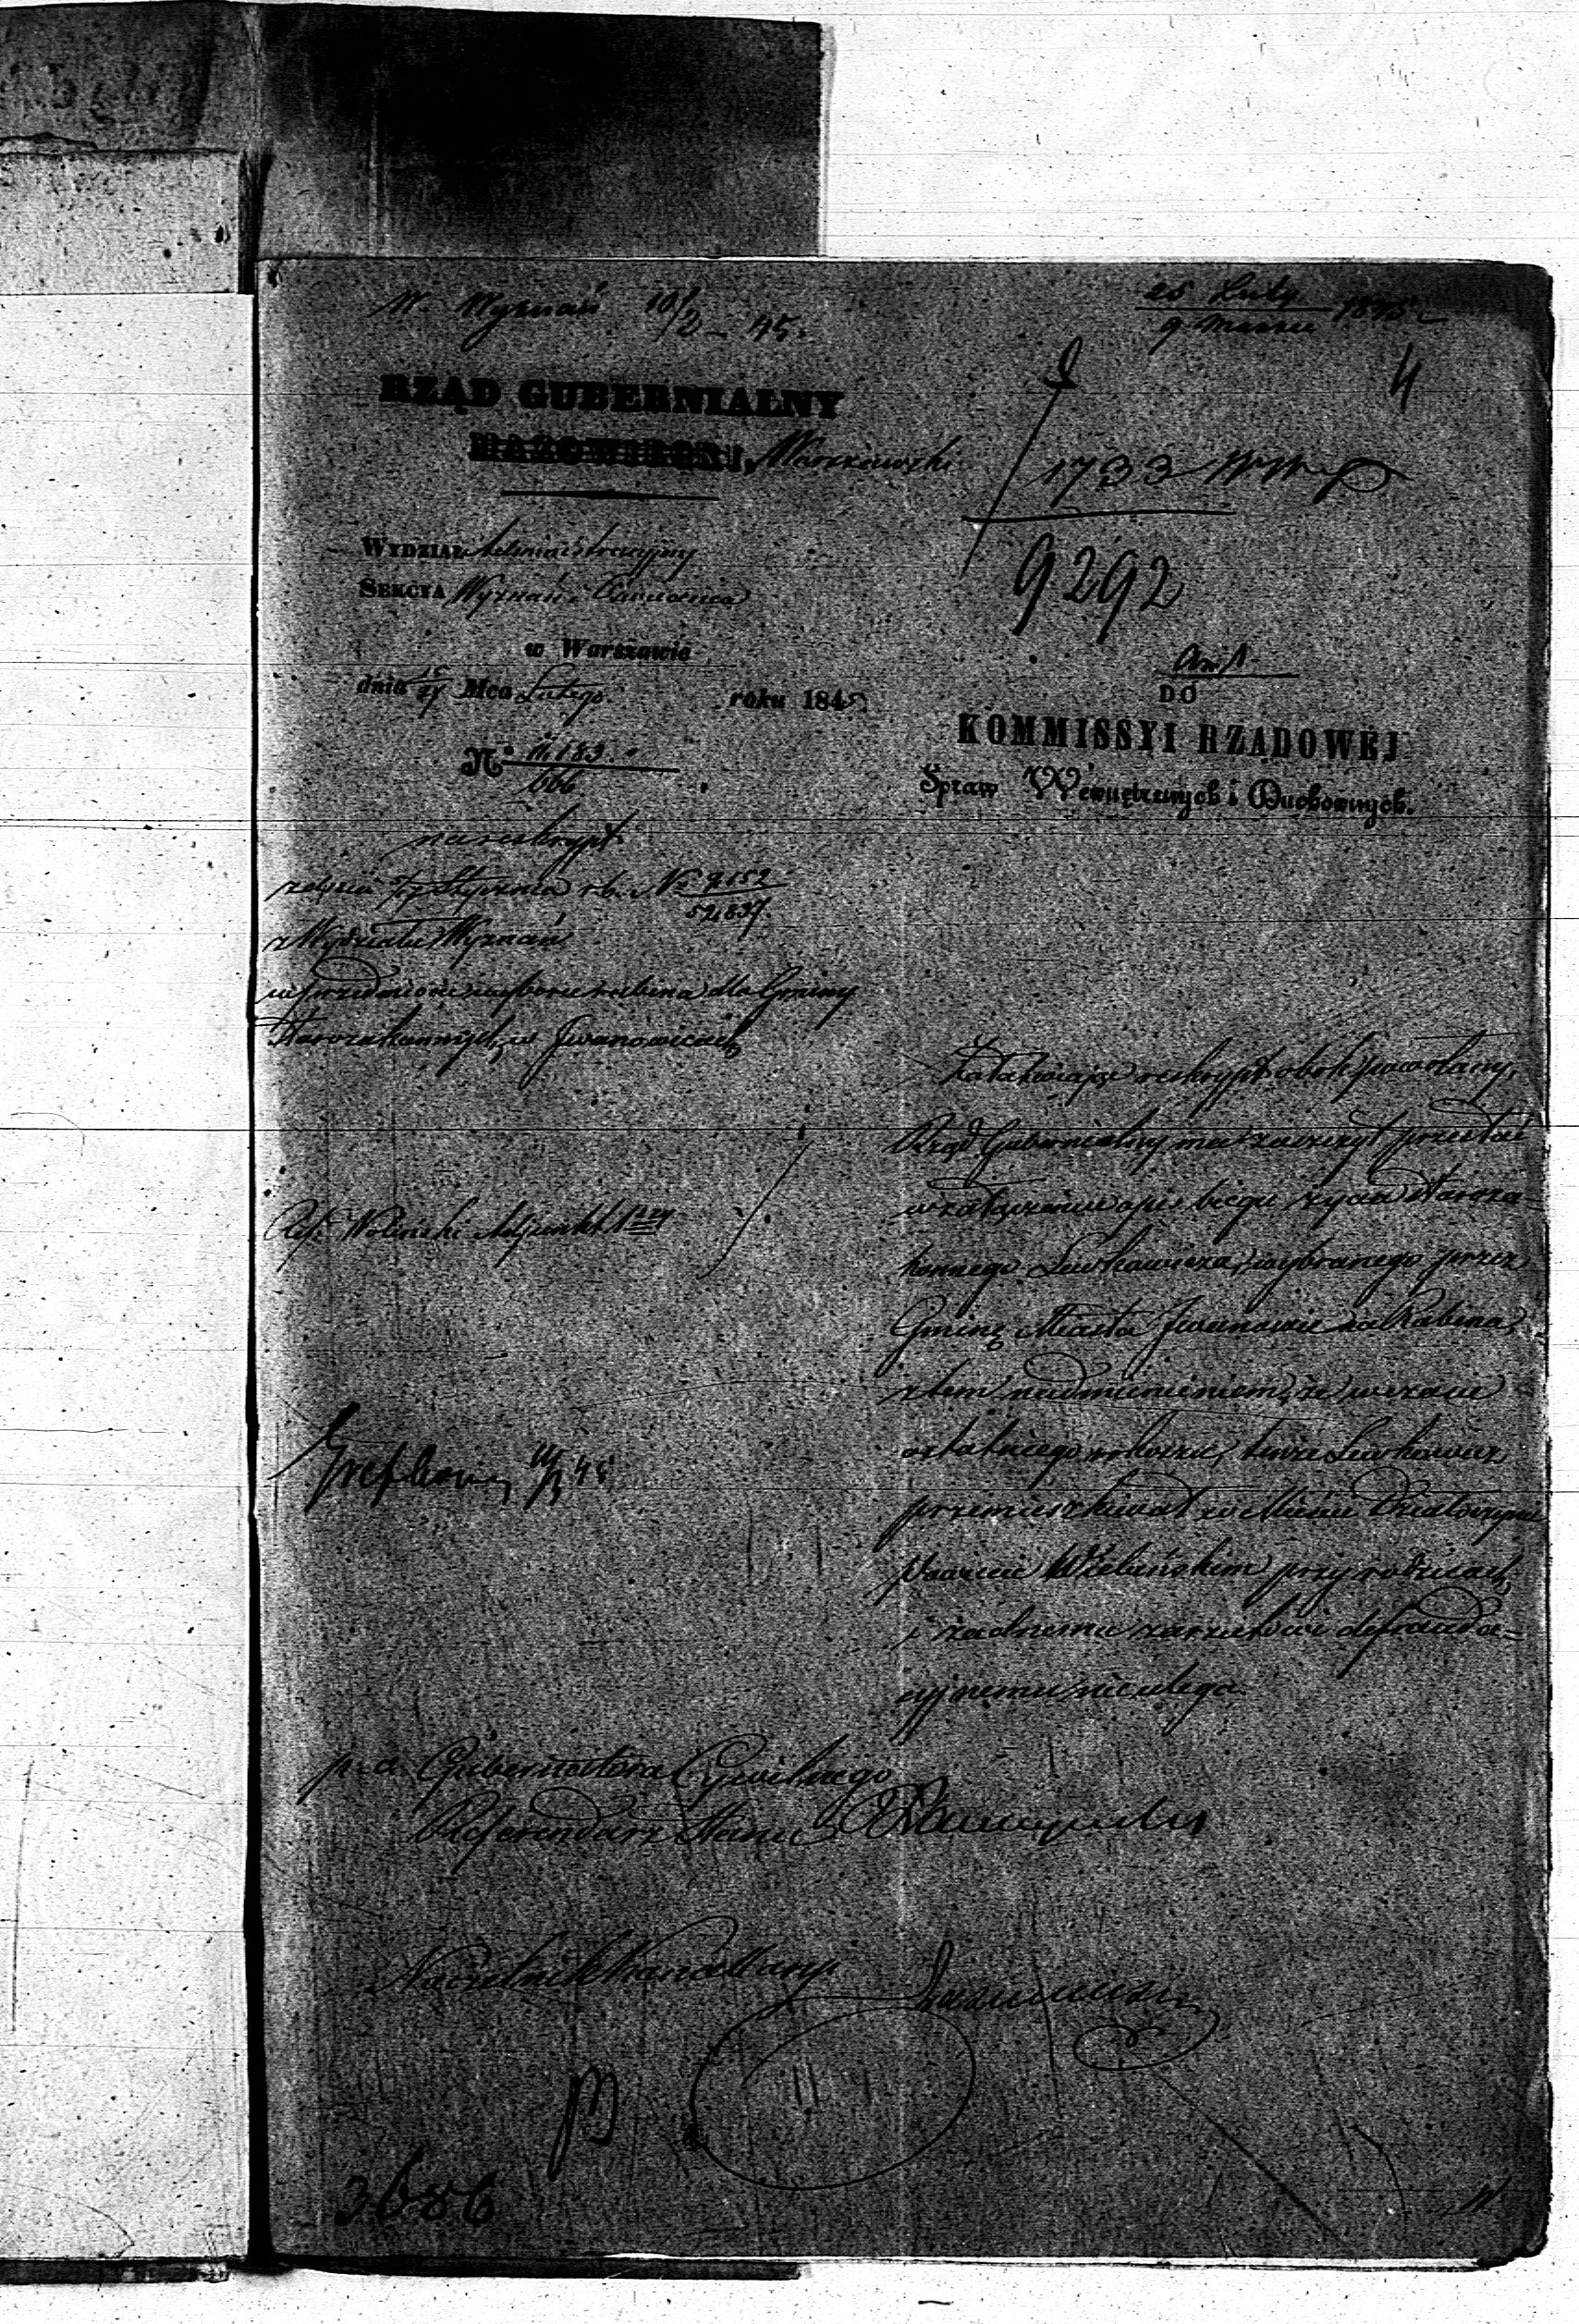 W. Wyznań 10/2 – 45.
25 Luty
9 Marca 1845 r.
4
RZĄD GUBERNIALNY
MAZOWIECKI, Warszawski
1733
9292
WYDZIAŁ Administracyjny
SEKCYA Wyznań i Oświecenia
w Warszawie
dnia Mca Lutego roku 1845
DO
KOMMISSYI RZĄDOWÉJ
Spraw Wewnętrznych i Duchownych.
№ 11,183.
666.
na reskrypt
z dnia Stycznia r.b. № 9152
52,837.
z Wydziału Wyznań
w przedmiocie wyboru rabina dla Gminy
Starozakonnych w Iwanowicach
Załatwiając reskrypt obok powołany,
Rząd Gubernialny ma zaszczyt przesłać
w załączeniu opis biegu życia staroza=
konnego Lewkowicza, wybranego przez
Gminę Miasta Iwanowic na Rabina,
z tem nadmienieniem, że w czasie
ostatniego rokoszu, tenże Lewkowicz
przemieszkiwał w Mieście Działoszynie
Powiecie Wieluńskim przy rodzicach,
i żadnemu zarzutowi defrauda=
cyjnemu nie ulega.
Ref. Woliński Adjunkt
p.o. Gubernatora Cywilnego
Referendarz Stanu
Naczelnik Kancellaryi
3686